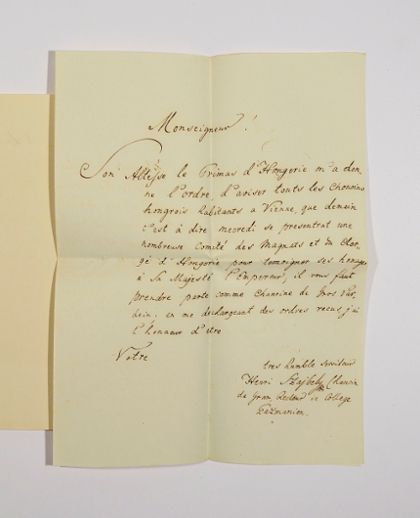 Monseigneur!
Son Altesse le Primas d'Hongerie m'a don
ne l'ordre, d'aviser touts les Chanoins
hongrois habitants a Vienne, que demain
c'est à dire mecredi se presentrat une
nombreuse Comité des Magnats et du Cler
gé d'Hongerie pour temoigner ses homages
à Sa Majesté l'Empereur, il vous faut
prendre parte comme Chanoine de Gros Var
dein; en me dechargeant des ordres recus, j'ai
l'honneur d'etre
Votre
tres humble Serviteur
Henri Szajbely Chanoin
de Gran Recteur de College
Pazmanien.